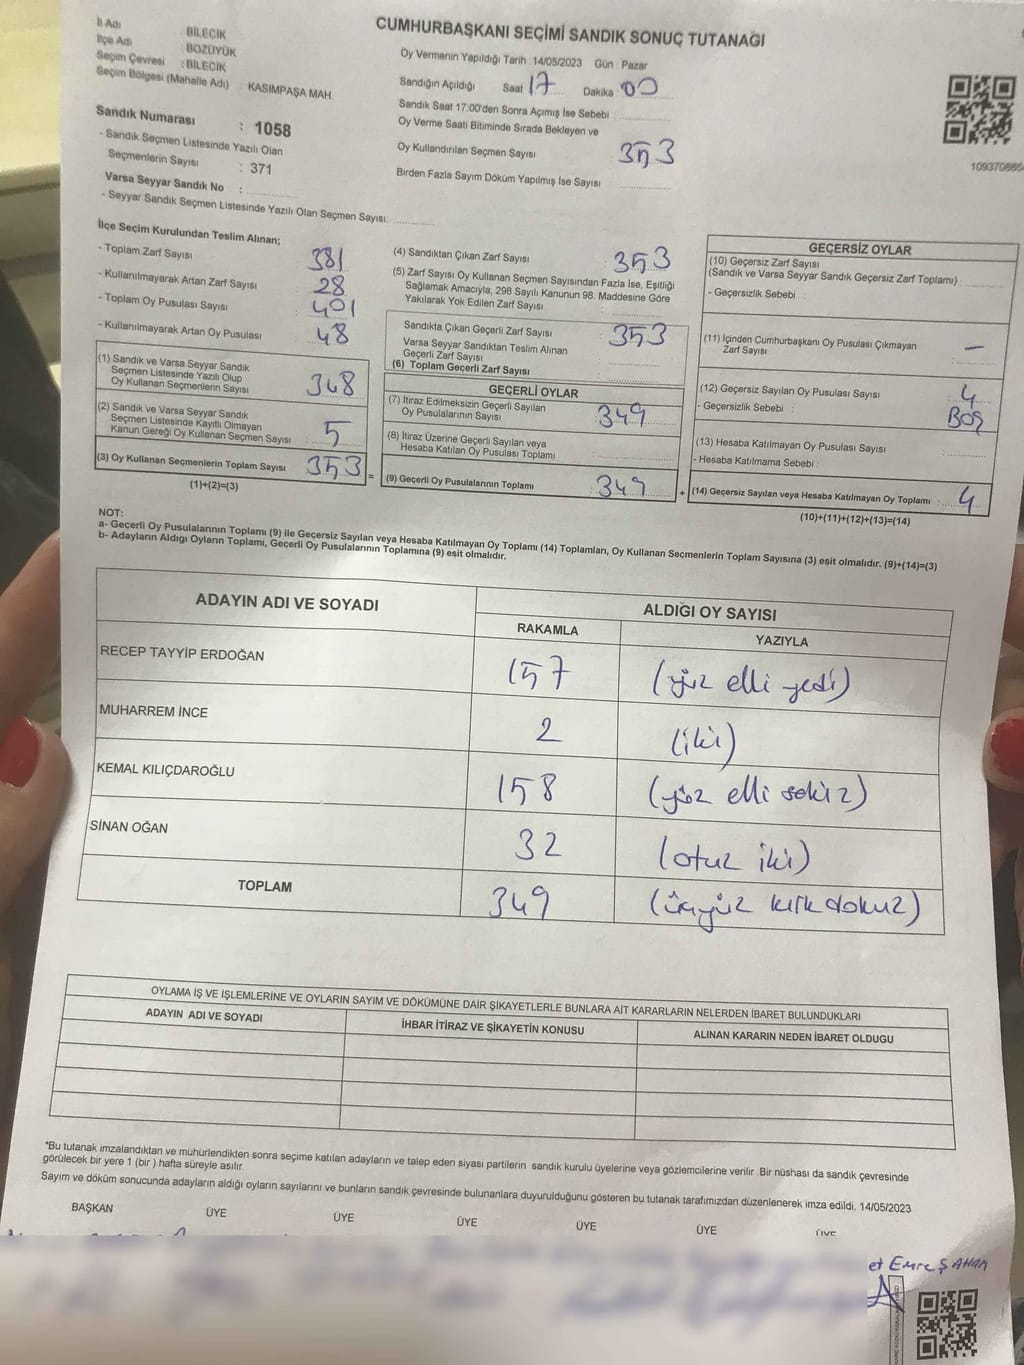 CUMHURBAŞKANI SEÇİMİ SANDIK SONUÇ TUTANAĞI
İl Adı : BİLECİK
İlçe Adı : BOZÜYÜK
Seçim Çevresi : BİLECİK
Seçim Bölgesi (Mahalle Adı) : KASIMPAŞA MAH.
Sandık Numarası : 1058
- Sandık Seçmen Listesinde Yazılı Olan
Seçmenlerin Sayısı : 371
Varsa Seyyar Sandık No :
- Seyyar Sandık Seçmen Listesinde Yazılı Olan Seçmen Sayısı:
Oy Vermenin Yapıldığı Tarih : 14/05/2023 Gün : Pazar
Sandığın Açıldığı Saat 17 Dakika 00
Sandık Saat 17.00'den Sonra Açımış İse Sebebi :
Oy Verme Saati Bitiminde Sırada Bekleyen ve
Oy Kullandırılan Seçmen Sayısı 353
Birden Fazla Sayım Döküm Yapılmış İse Sayısı
109370665
İlçe Seçim Kurulundan Teslim Alınan;
- Toplam Zarf Sayısı 381
- Kullanılmayarak Artan Zarf Sayısı : 28
- Toplam Oy Pusulası Sayısı : 401
- Kullanılmayarak Artan Oy Pusulası : 48
(1) Sandık ve Varsa Seyyar Sandık
Seçmen Listesinde Yazılı Olup
Oy Kullanan Seçmenlerin Sayısı : 348
(2) Sandık ve Varsa Seyyar Sandık
Seçmen Listesinde Kayıtlı Olmayan
Kanun Gereği Oy Kullanan Seçmen Sayısı : 5
(3) Oy Kullanan Seçmenlerin Toplam Sayısı 353
(1)+(2)=(3)
=
(4) Sandıktan Çıkan Zarf Sayısı : 353
(5) Zarf Sayısı Oy Kullanan Seçmen Sayısından Fazla İse, Eşitliği
Sağlamak Amacıyla, 298 Sayılı Kanunun 98. Maddesine Göre
Yakılarak Yok Edilen Zarf Sayısı :
Sandıkta Çıkan Geçerli Zarf Sayısı : 353
Varsa Seyyar Sandıktan Teslim Alınan
Geçerli Zarf Sayısı
(6) Toplam Geçerli Zarf Sayısı
GEÇERLİ OYLAR
(7) İtiraz Edilmeksizin Geçerli Sayılan
Oy Pusulalarının Sayısı : 349
(8) İtiraz Üzerine Geçerli Sayılan veya
Hesaba Katılan Oy Pusulası Toplamı
(9) Geçerli Oy Pusulalarının Toplamı : 349
+
GEÇERSİZ OYLAR
(10) Geçersiz Zarf Sayısı
(Sandık ve Varsa Seyyar Sandık Geçersiz Zarf Toplamı) :
- Geçersizlik Sebebi :
(11) İçinden Cumhurbaşkanı Oy Pusulası Çıkmayan
Zarf Sayısı : —
(12) Geçersiz Sayılan Oy Pusulası Sayısı : 4
- Geçersizlik Sebebi : BOŞ
(13) Hesaba Katılmayan Oy Pusulası Sayısı :
- Hesaba Katılmama Sebebi :
(14) Geçersiz Sayılan veya Hesaba Katılmayan Oy Toplamı : 4
(10)+(11)+(12)+(13)=(14)
NOT:
a- Geçerli Oy Pusulalarının Toplamı (9) ile Geçersiz Sayılan veya Hesaba Katılmayan Oy Toplamı (14) Toplamları, Oy Kullanan Seçmenlerin Toplam Sayısına (3) eşit olmalıdır. (9)+(14)=(3)
b- Adayların Aldığı Oyların Toplamı, Geçerli Oy Pusulalarının Toplamına (9) eşit olmalıdır.
ADAYIN ADI VE SOYADI ALDIĞI OY SAYISI
RAKAMLA YAZIYLA
RECEP TAYYİP ERDOĞAN 157 (yüz elli yedi)
MUHARREM İNCE 2 (iki)
KEMAL KILIÇDAROĞLU 158 (yüz elli sekiz)
SİNAN OĞAN 32 (otuz iki)
TOPLAM 349 (üçyüz kırk dokuz)
OYLAMA İŞ VE İŞLEMLERİNE VE OYLARIN SAYIM VE DÖKÜMÜNE DAİR ŞİKAYETLERLE BUNLARA AİT KARARLARIN NELERDEN İBARET BULUNDUKLARI
ADAYIN ADI VE SOYADI İHBAR İTİRAZ VE ŞİKAYETİN KONUSU ALINAN KARARIN NEDEN İBARET OLDUGU
*Bu tutanak imzalandıktan ve mühürlendikten sonra seçime katılan adayların ve talep eden siyasi partilerin sandık kurulu üyelerine veya gözlemcilerine verilir. Bir nüshası da sandık çevresinde
görülecek bir yere 1 (bir ) hafta süreyle asılır.
Sayım ve döküm sonucunda adayların aldığı oyların sayılarını ve bunların sandık çevresinde bulunanlara duyurulduğunu gösteren bu tutanak tarafımızdan düzenlenerek imza edildi. 14/05/2023
BAŞKAN ÜYE ÜYE ÜYE ÜYE ÜYE ÜYE
et Emre ŞAHAN